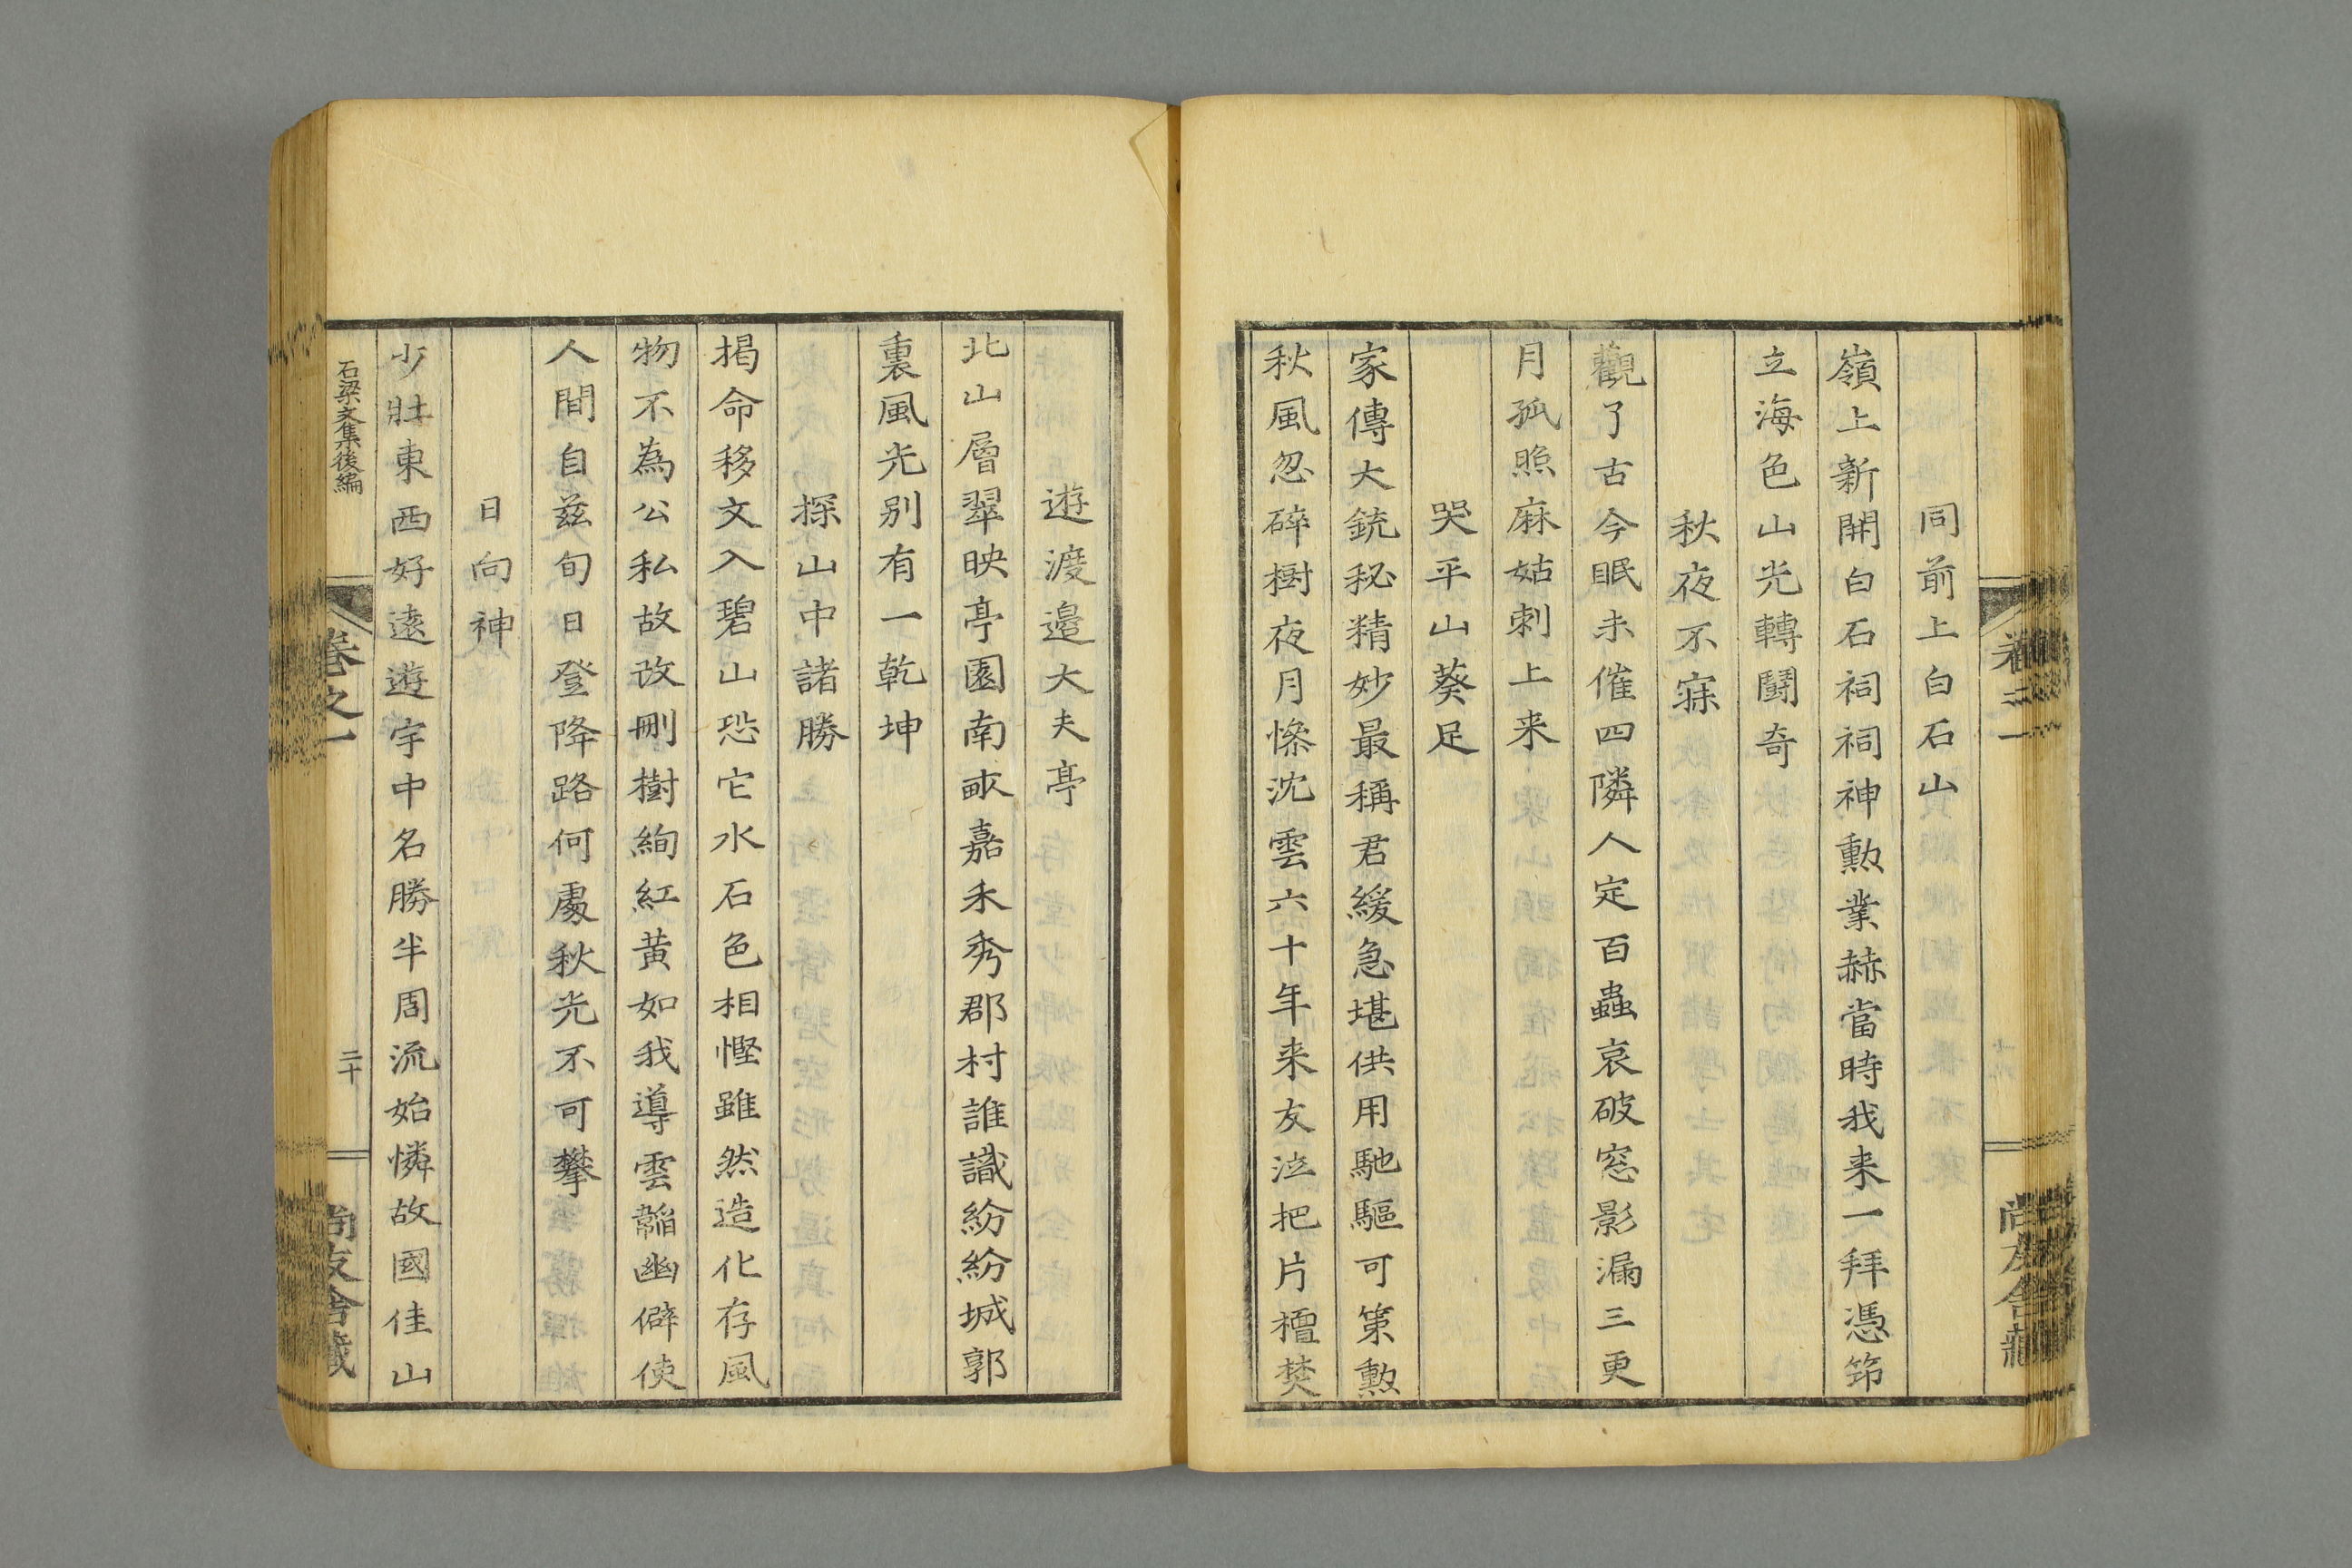 同前上白石山
嶺上新開白石祠祠神勲業赫當時我来一拜憑筇
立海色山光轉鬪奇
秋夜不寐
觀了古今眠未催四隣人定百蟲哀破窓影漏三更
月孤照麻姑刺上来
哭平山葵足
家傳大銃秘精妙最稱君緩急堪供用馳驅可第勲
秋風忽碎樹夜月惨沈雲六十年来友泣把片檀焚
遊渡邉大夫亭
北山層翠映亭園南畝嘉禾秀郡村誰識紛紛城郭
裏風光别有一乾坤
探山中諸勝
掲命移文入碧山恐它水石色相慳雖然造化存風
物不為公私故改刪樹絢紅黄如我導雲韜幽僻使
人間自茲旬日登降路何處秋光不可攀
日向神
少壯東西好遠遊宇中名勝半周流始憐故國佳山
石梁文集後編
卷之一
二十
尚友舎藏